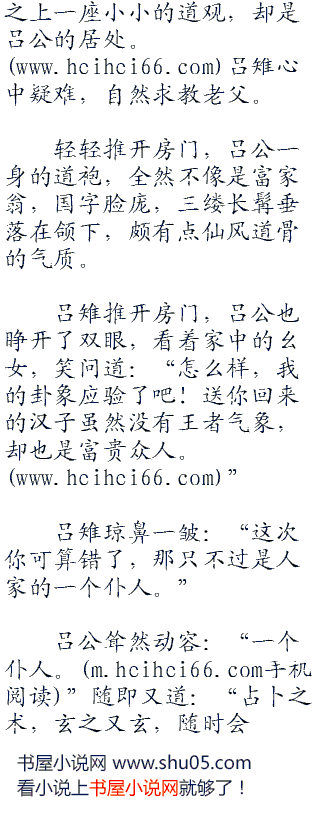 之上一座小小的道观，却是
吕公的居处。
(www.hcihci66.com)吕雉心
中疑难，自然求教老父。
轻轻推开房门，吕公一
身的道袍，全然不像是富家
翁，国字脸庞，三缕长髯垂
落在颌下，颇有点仙风道骨
的气质。
吕雉推开房门，吕公也
睁开了双眼，看着家中的幺
女，笑问道：“怎么样，我
的卦象应验了吧！送你回来
的汉子虽然没有王者气象，
却也是富贵众人。
(www.hcihci66.com)”
吕雉琼鼻一皱：“这次
你可算错了，那只不过是人
家的一个仆人。”
吕公耸然动容：“一个
仆人。(m.hcihci66.com手机
阅读)”随即又道：“占卜之
术，玄之又玄，随时会
书屋小说网 www.shu05.com
看小说上书屋小说网就够了！